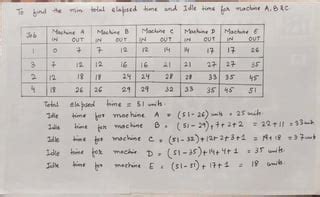 To find the min. total elapsed time and Idle time for machine A, B & C.
Job Machine A Machine B Machine C Machine D Machine E
IN OUT IN OUT IN OUT IN OUT IN OUT
1 0 7 7 12 12 14 14 17 17 26
3 7 12 12 16 16 21 21 27 27 35
2 12 18 18 24 24 28 28 33 35 45
4 18 26 26 29 29 32 33 35 45 51
Total elapsed time = 51 units.
Idle time for machine A = (51-26) units = 25 units.
Idle time for machine B = (51-29)+7+2+2 = 22+11 = 33 units
Idle time for machine C = (51-32)+12+2+3+1 = 19+18 = 37 units
Idle time for machine D = (51-35)+14+4+1 = 35 units
Idle time for machine E = (51-51)+17+1 = 18 units.